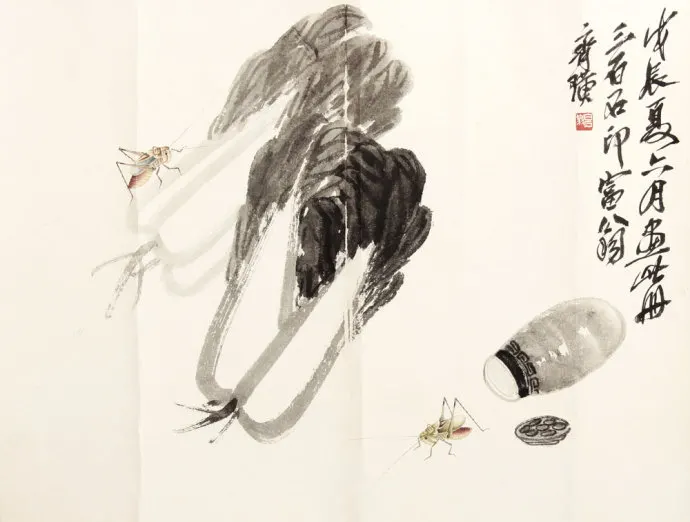 戊辰夏六月画此册
三百石印富翁
齐璜